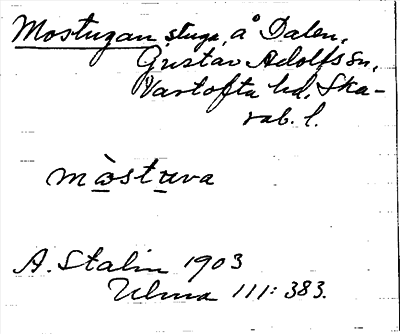 Mostugan, stuga, å Dalen,
Gustav Adolfs sn,
Vartofta hd, Ska-
rab. l.
mòstuva
A. Stalin 1903
Ulma 111: 383.